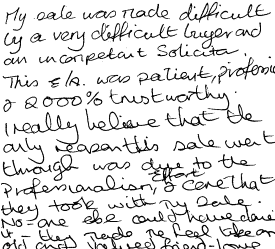 My sale was made difficult
by a very difficult buyer and
an incompetent Solicitor.
This E/A. was patient, profess
& 2000% trustworthy.
I really believe that the
only reason this sale went
through was due to the
Professionalism, Effort & care that
they took with my Sale.
No-one else could have done
it - they made me feel like an
old and valued friend